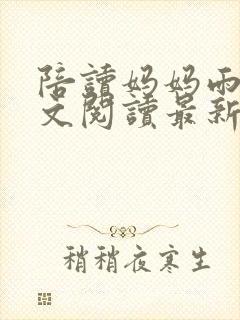 陪讀妈妈雨
文閱讀最新
稍稍夜寒生